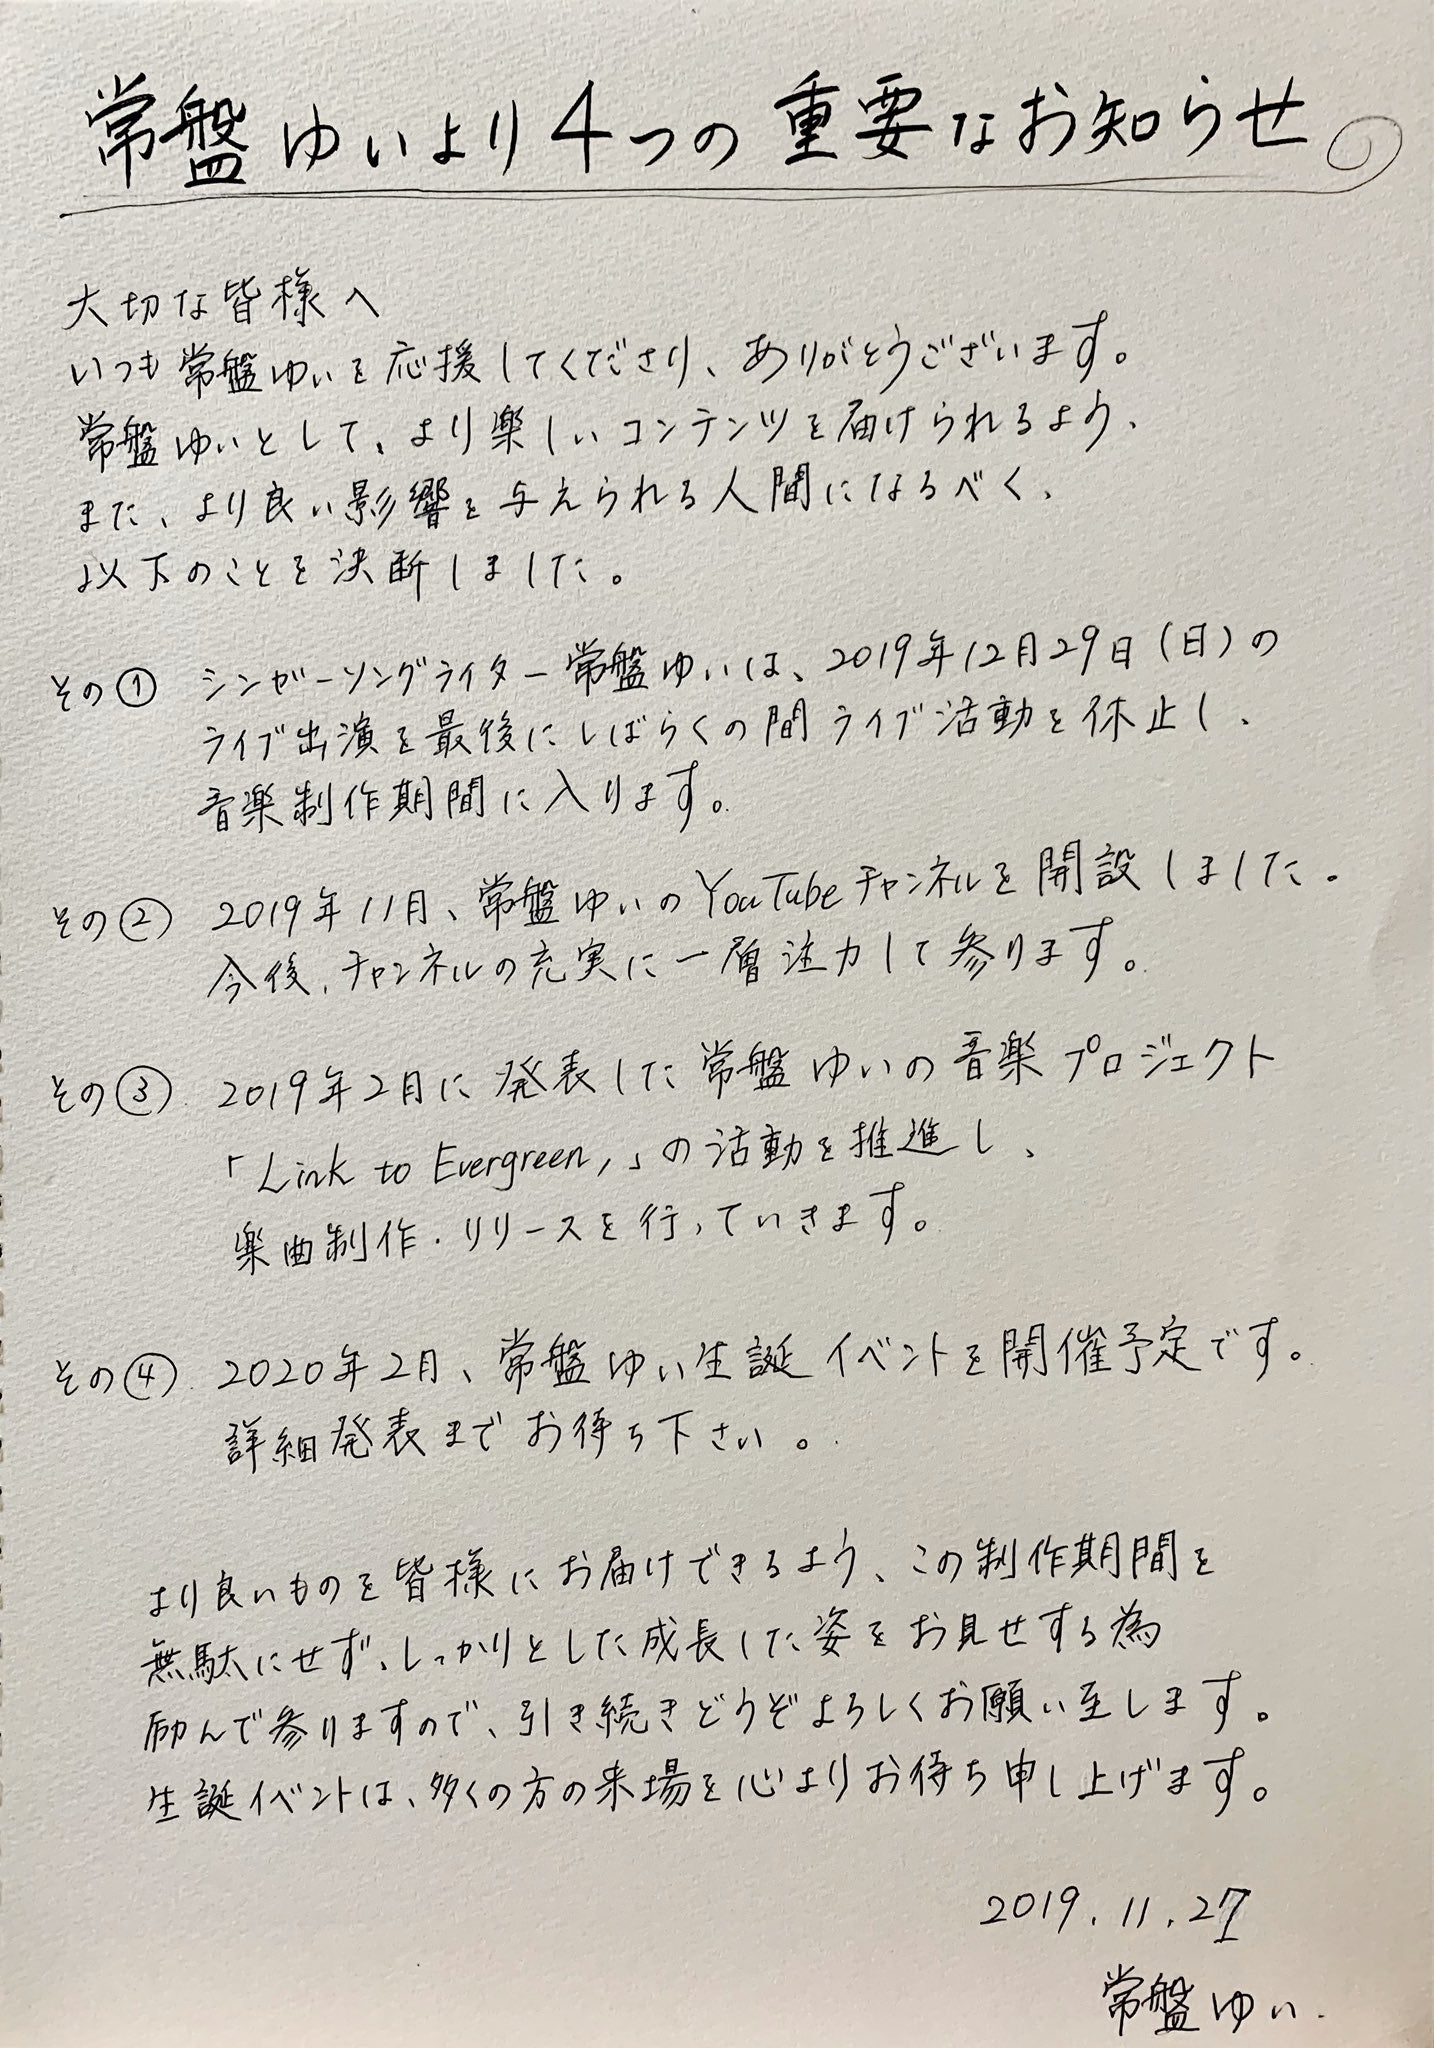 常盤ゆいより4つの重要なお知らせ
大切な皆様へ
いつも常盤ゆいを応援してくださり、ありがとうございます。
常盤ゆいとして、より楽しいコンテンツを届けられるよう、
また、より良い影響を与えられる人間になるべく、
以下のことを決断しました。
その① シンガーソングライター常盤ゆいは、2019年12月29日(日)の
ライブ出演を最後にしばらくの間ライブ活動を休止し、
音楽制作期間に入ります。
その② 2019年11月、常盤ゆいのYouTubeチャンネルを開設しました。
今後、チャンネルの充実に一層注力して参ります。
その③ 2019年2月に発表した常盤ゆいの音楽プロジェクト
「Link to Evergreen,」の活動を推進し、
楽曲制作・リリースを行っていきます。
その④ 2020年2月、常盤ゆい生誕イベントを開催予定です。
詳細発表までお待ち下さい。
より良いものを皆様にお届けできるよう、この制作期間を
無駄にせず、しっかりとした成長した姿をお見せする為
励んで参りますので、引き続きどうぞよろしくお願い至します。
生誕イベントは、多くの方の来場を心よりお待ち申し上げます。
2019.11.27
常盤ゆい.